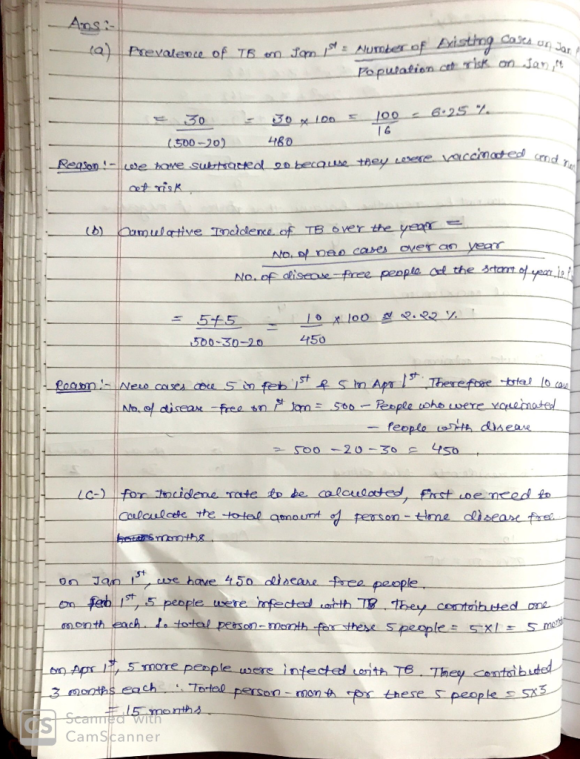 Ans :-
(a) Prevalence of TB on Jan 1st = Number of Existing Cases on Jan 1
Population at risk on Jan 1st
= 30 = 30 x 100 = 100 = 6.25 %
(500-20) 480 16
Reason :- we have subtracted 20 because they were vaccinated and
at risk.
(b) Camulative Incidence of TB over the year =
No. of new cases over an year
No. of disease-free people at the start of year
= 5+5 = 10 x 100 2.22 %
500-30-20 450
Reason :- New cases are 5 in feb 1st & 5 in Apr 1st. Therefore total 10
No. of disease-free on 1st Jan = 500 - People who were vaccinated
- People with disease
= 500 - 20 - 30 = 450
(C-) for Incidene rate to be calculated, first we need to
calculate the total amount of person-time disease free
months.
on Jan 1st, we have 450 disease free people.
on feb 1st, 5 people were infected with TB. They contributed one
month each. So total person-month for these 5 people = 5x1 = 5
on Apr 1st, 5 more people were infected with TB. They contributed
3 months each ∴ Total person-month for these 5 people = 5x3
= 15 months.
CS Scanned with
CamScanner